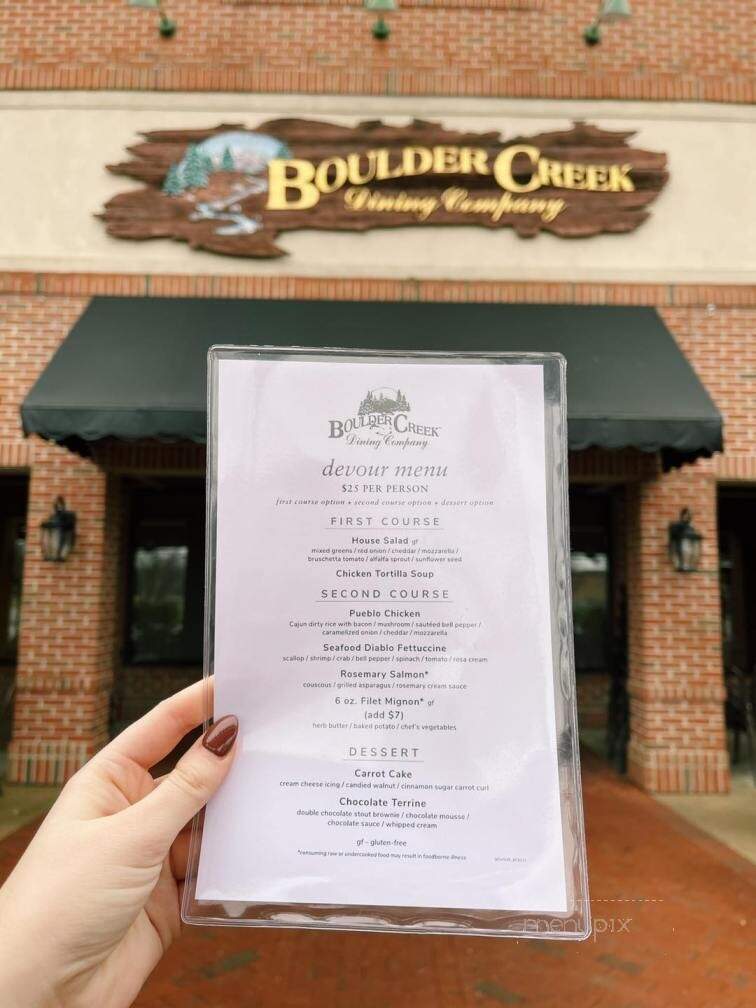 BOULDER CREEK
Dining Company
BOULDER CREEK
Dining Company
devour menu
$25 PER PERSON
first course option + second course option + dessert option
FIRST COURSE
House Salad gf
mixed greens / red onion / cheddar / mozzarella /
bruschetta tomato / alfalfa sprout / sunflower seed
Chicken Tortilla Soup
SECOND COURSE
Pueblo Chicken
Cajun dirty rice with bacon / mushroom / sautéed bell pepper /
caramelized onion / cheddar / mozzarella
Seafood Diablo Fettuccine
scallop / shrimp / crab / bell pepper / spinach / tomato / rosa cream
Rosemary Salmon*
couscous / grilled asparagus / rosemary cream sauce
6 oz. Filet Mignon* gf
(add $7)
herb butter / baked potato / chef's vegetables
DESSERT
Carrot Cake
cream cheese icing / candied walnut / cinnamon sugar carrot curl
Chocolate Terrine
double chocolate stout brownie / chocolate mousse /
chocolate sauce / whipped cream
gf - gluten-free
*consuming raw or undercooked food may result in foodborne illness
menupix